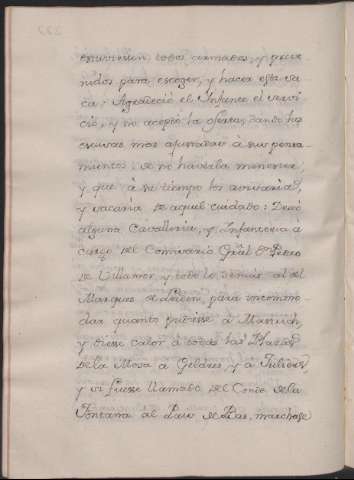 estuviesen todos armados, y preve-
nidos para escoger, y hacer esta va-
ca: Agradeció el Infante el servi-
cio, y no acepto la oferta, dando las
escusas mas ajustadas à sus pensa-
mientos: de no haverla menester,
y que à su tiempo los avisaria,
y sacaria de aquel cuidado: Dexó
alguna Cavalleria, y Infanteria à
cargo del Comisario Gral. Dn. Pedro
de Villamor, y todo lo demás al del
Marques de Leiden, para incomo-
dar quanto pudiese à Mastrich,
y diese calor à todas las Plazas
de la Mosa à Geldres, y à Juliers,
y si fuese llamado del Conde de la
Fontana al Pais de Bas, marchase